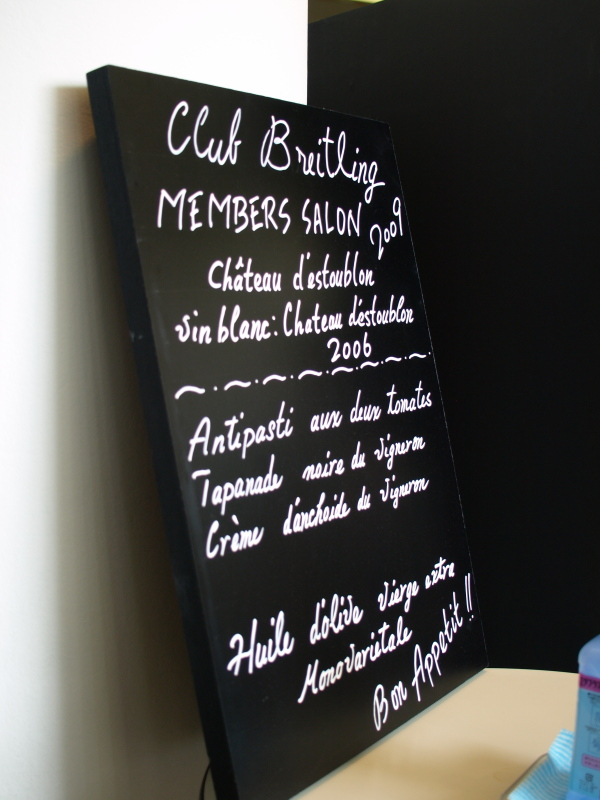 Club Breitling
MEMBERS SALON 2009
Château d'estoublon
vin blanc: Chateau d'éstoublon
2006
Antipasti aux deux tomates
Tapanade noire du vigneron
Crème d'anchoide du vigneron
Huile d'olive vierge extra
Monovarietale
Bon Appetit !!